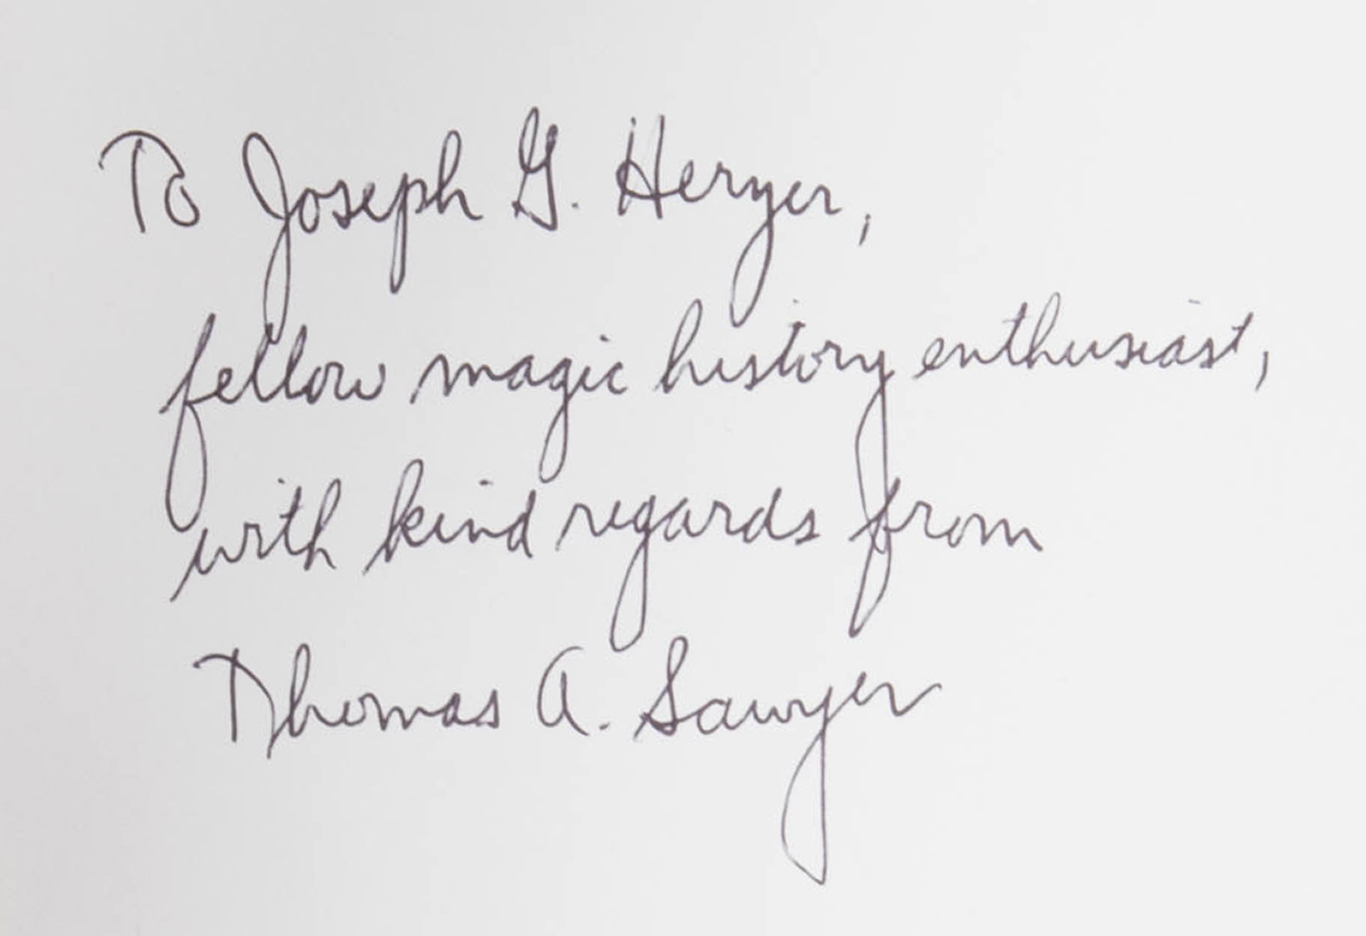 To Joseph G. Heryer,
fellow magic history enthusiast,
with kind regards from
Thomas A. Sawyer